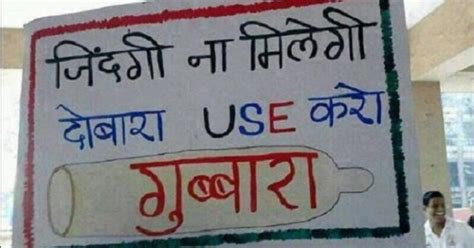 जिंदगी ना मिलेगी
दोबारा USE करो
गुब्बारा